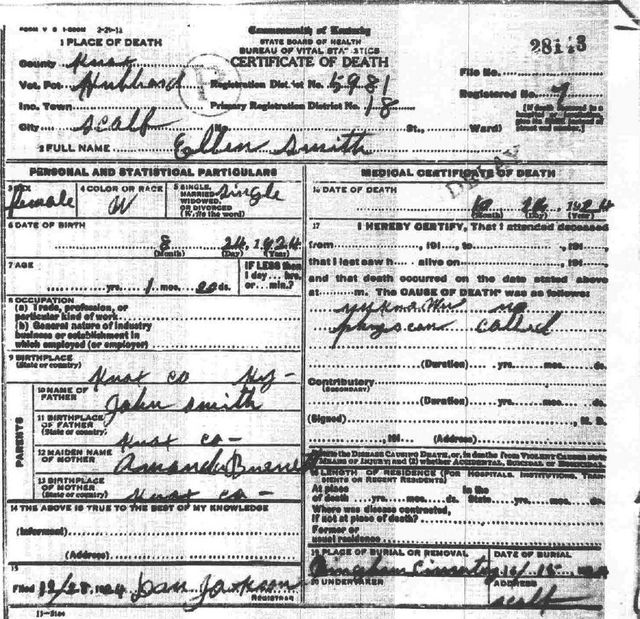 FORM V S 1-200M 2-21-13
Commonwealth of Kentucky
STATE BOARD OF HEALTH
BUREAU OF VITAL STATISTICS
CERTIFICATE OF DEATH
28113
1 PLACE OF DEATH
County Knox
File No.
Vot. Pct. Hubbard
Registration District No. 5981
Registered No. 7
Inc. Town
Primary Registration District No. 18
City Scalf
St., Ward)
2 FULL NAME Ellen Smith
PERSONAL AND STATISTICAL PARTICULARS
3 SEX Female
4 COLOR OR RACE W
5 SINGLE, MARRIED, WIDOWED, OR DIVORCED (Write the word) Single
6 DATE OF BIRTH
8 24, 1924
(Month) (Day) (Year)
7 AGE
yrs. 1 mos. 20 ds.
IF LESS than 1 day... hrs. or... min.?
8 OCCUPATION
(a) Trade, profession, or
particular kind of work
(b) General nature of industry
business or establishment in
which employed (or employer)
9 BIRTHPLACE
(State or country)
Knox Co Ky-
PARENTS
10 NAME OF FATHER
John Smith
11 BIRTHPLACE OF FATHER
(State or country)
Knox Co-
12 MAIDEN NAME OF MOTHER
Amanda
13 BIRTHPLACE OF MOTHER
(State or country)
Knox Co-
14 THE ABOVE IS TRUE TO THE BEST OF MY KNOWLEDGE
(Informant)
(Address)
15
Filed 12/28 1924
REGISTRAR
MEDICAL CERTIFICATE OF DEATH
16 DATE OF DEATH
DELAY
1924
(Month) (Day) (Year)
17 I HEREBY CERTIFY, That I attended deceased
from , 191 , to , 191 ,
that I last saw h alive on , 191 ,
and that death occurred on the date stated above
at m. The CAUSE OF DEATH* was as follows:
no
called
(Duration) yrs. mos. ds.
Contributory
(SECONDARY)
(Duration) yrs. mos. ds.
(Signed) , M. D.
, 191 (Address)
state the DISEASE CAUSING DEATH, or, in deaths from VIOLENT CAUSES state
MEANS OF INJURY; and (2) whether ACCIDENTAL, SUICIDAL or HOMICIDAL
LENGTH OF RESIDENCE (FOR HOSPITALS, INSTITUTIONS, TRANSIENTS OR RECENT RESIDENTS)
At place of death yrs. mos. ds.
In the State yrs. mos. ds.
Where was disease contracted,
If not at place of death?
Former or
usual residence
19 PLACE OF BURIAL OR REMOVAL
DATE OF BURIAL
20 UNDERTAKER
ADDRESS
Scalf